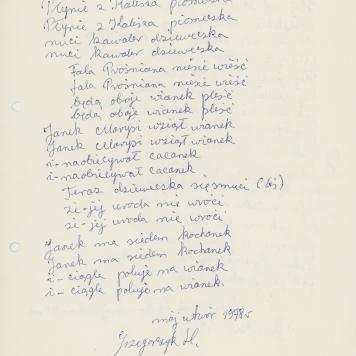 Płynie z Kalisza piosneczka
Płynie z Kalisza piosneczka
nuci kawaler dzieweczka
nuci kawaler dzieweczka
Fala Prośniana niesie wieść
fala Prośniana niesie wieść
będą oboje wianek pleść
będą oboje wianek pleść
Janek Marysi wziął wianek
Janek Marysi wziął wianek
i-naobiecywał cacanek
i-naobiecywał cacanek
Teraz dzieweczka się smuci
że-jej uroda nie wróci
że-jej uroda nie wróci.
Janek ma siedem kochanek
Janek ma siedem kochanek
i-ciągle poluje na wianek
i-ciągle poluje na wianek.
mój utwór 1998r
Grzegorzyk H.